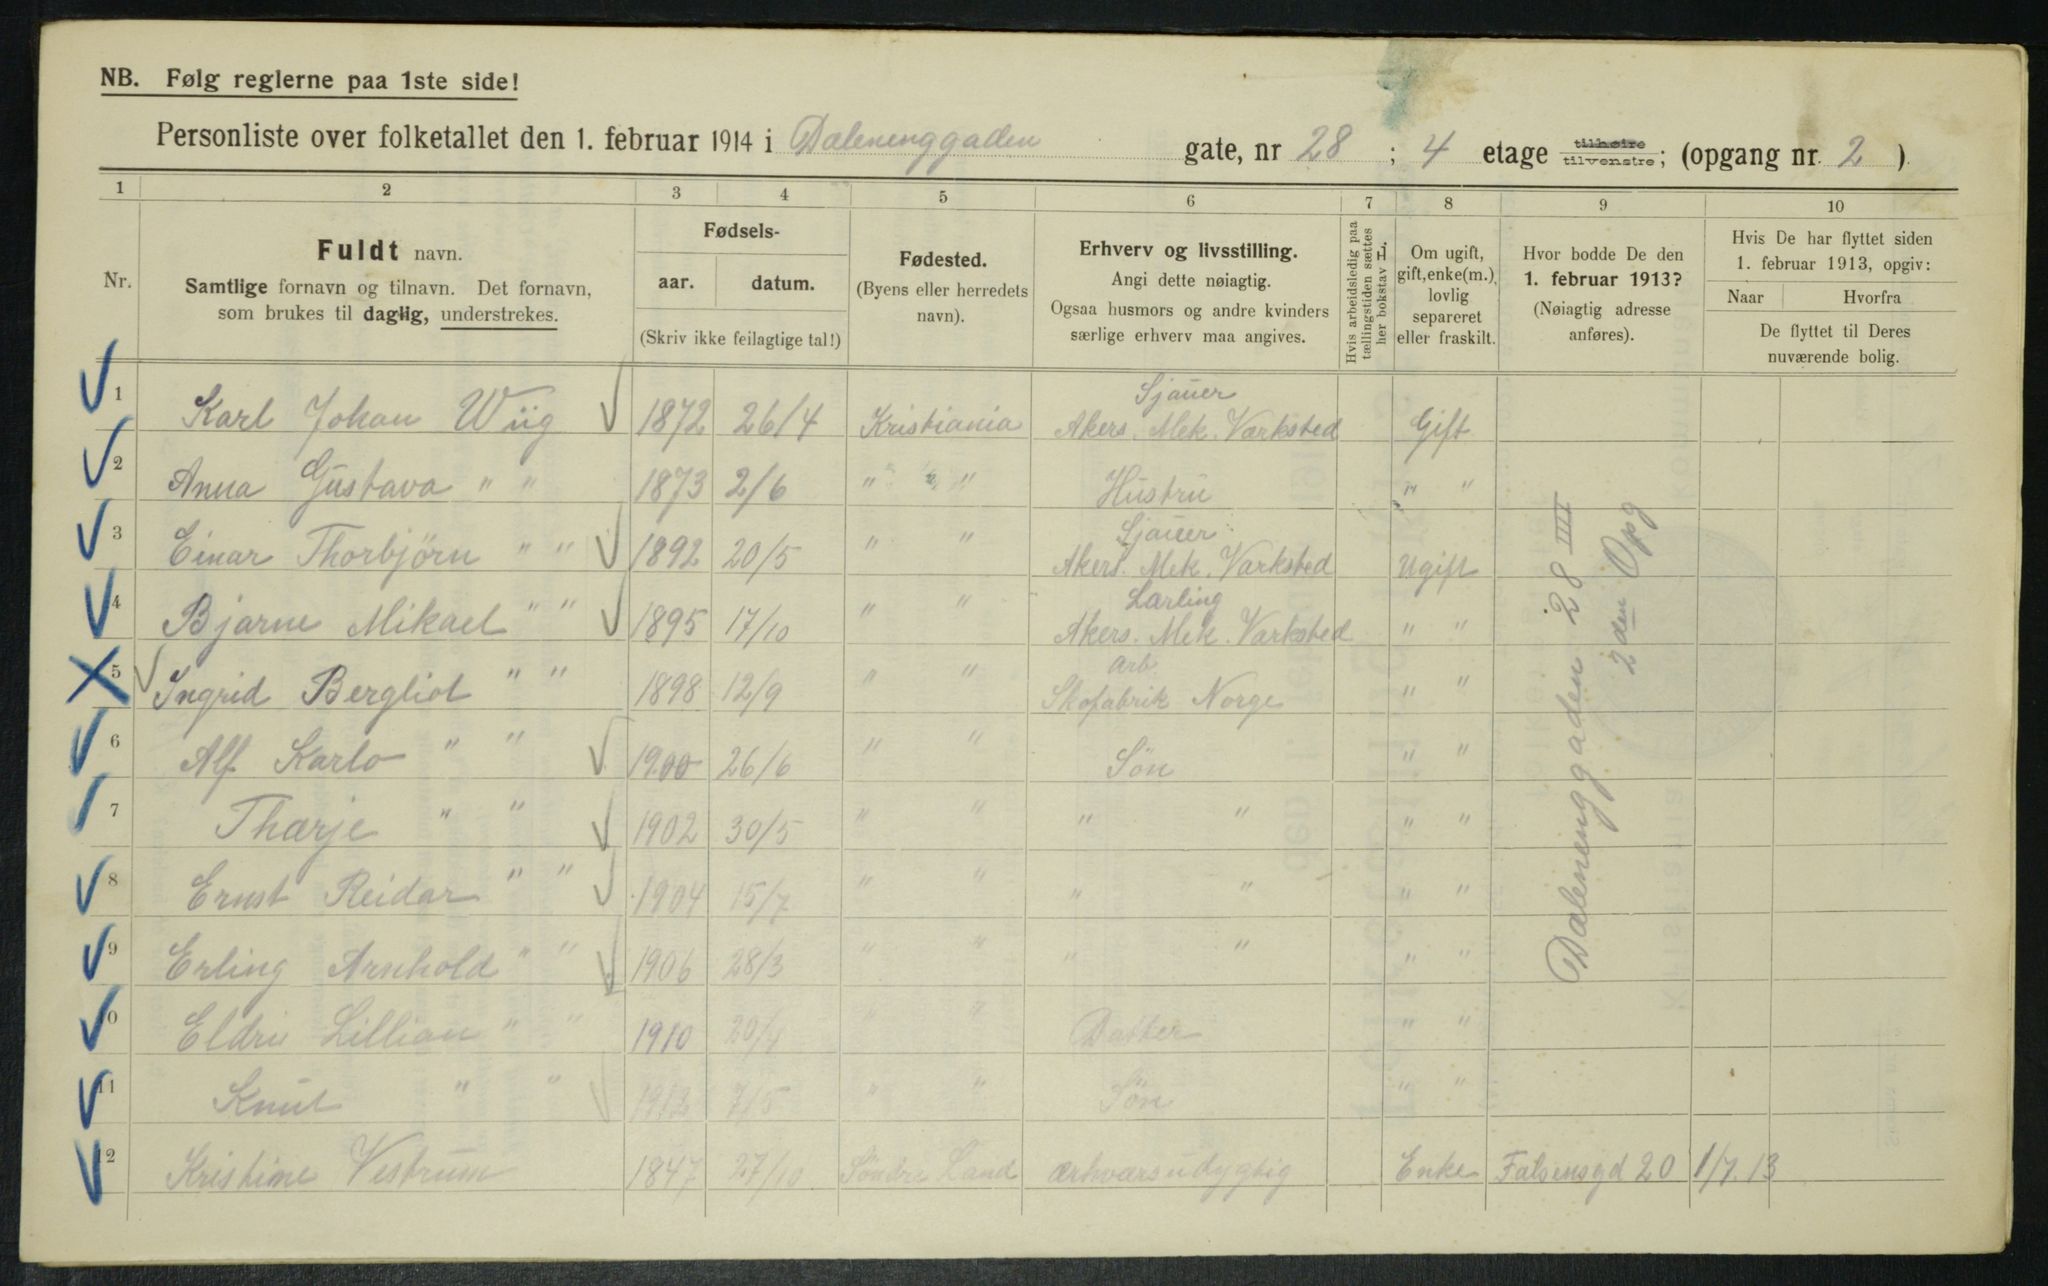 NB. Følg reglerne paa 1ste side!
Personliste over folketallet den 1. februar 1914 i Dælenenggaden gate, nr 28 ; 4 etage tilhøire tilvenstre; (opgang nr. 2 )
1 2 3 4 5 6 7 8 9 10
Nr.
Fuldt navn.
Samtlige fornavn og tilnavn. Det fornavn,
som brukes til daglig, understrekes.
Fødsels-
aar. datum.
(Skriv ikke feilagtige tal!)
Fødested.
(Byens eller herredets
navn).
Erhverv og livsstilling.
Angi dette nøiagtig.
Ogsaa husmors og andre kvinders
særlige erhverv maa angives.
Hvis arbeidsledig paa
tællingstiden sættes
her bokstav L.
Om ugift,
gift, enke(m.),
lovlig
separeret
eller fraskilt.
Hvor bodde De den
1. februar 1913?
(Nøiagtig adresse
anføres).
Hvis De har flyttet siden
1. februar 1913, opgiv:
Naar Hvorfra
De flyttet til Deres
nuværende bolig.
1 Karl Johan Wiig 1872 26/4 Kristiania Sjauer Akers. Mek. Værksted Gift
2 Anna Gustava " " 1873 2/6 " " Hustru " "
3 Einar Thorbjørn " " 1892 20/5 " " Sjauer Akers. Mek. Værksted Ugift
4 Bjarne Mikael " " 1895 17/10 " " Lærling Akers. Mek. Værksted " "
5 Ingrid Bergliot " " 1898 12/9 " " Arb Skofabrik Norge " "
6 Alf Karlo " " 1900 26/6 " " Søn " "
7 Thærje " " 1902 30/5 " " " " " "
8 Ernst Reidar " " 1904 15/7 " " " " " "
9 Erling Arnhold " " 1906 28/3 " " " " " "
10 Eldri Lillian " " 1910 20/4 " " Datter " "
11 Knut " " 1912 7/5 " " Søn " "
12 Kristine Vestrum 1847 27/10 Søndre Land ærhværsudygtig Enke Falsensgd 20 1/7 13
Dælenenggaden 28 III
2den Opg